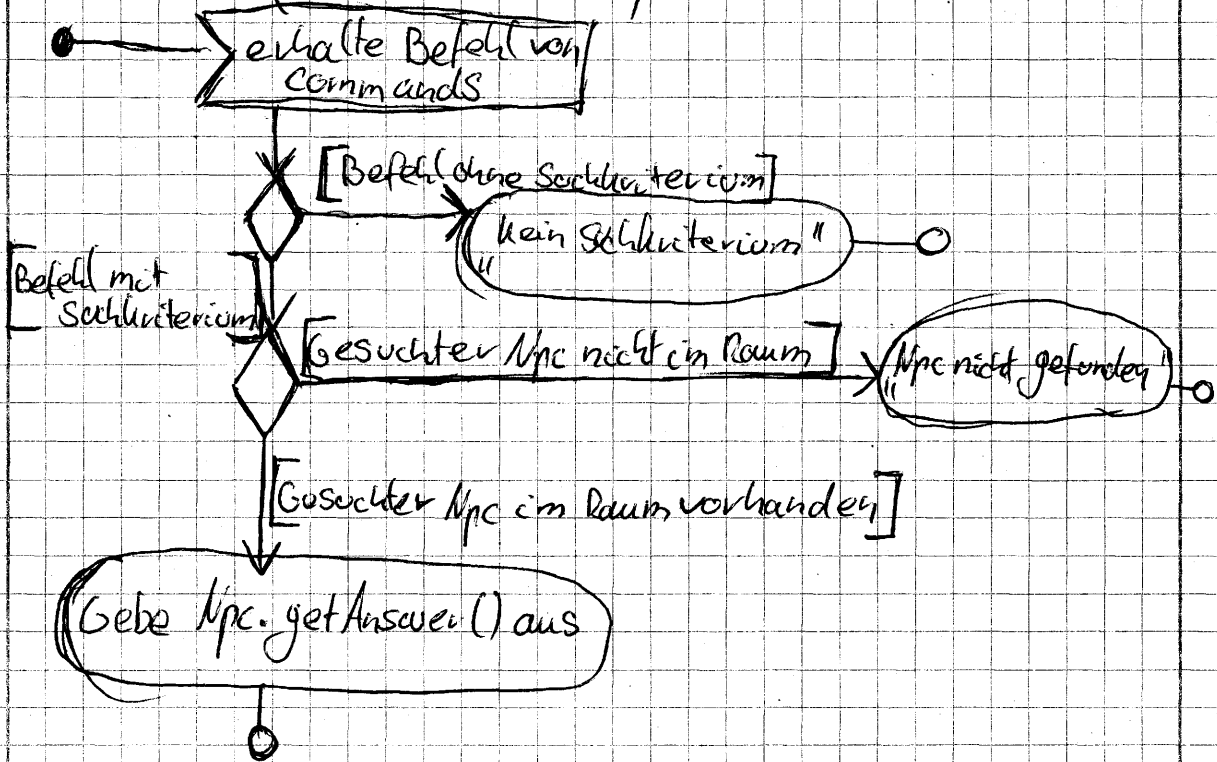 erhalte Befehl von
Commands
[Befehl ohne Suchkriterium]
"kein Suchkriterium"
[Befehl mit
Suchkriterium]
[Gesuchter Npc nicht im Raum]
"Npc nicht gefunden"
[Gesuchter Npc im Raum vorhanden]
Gebe Npc.getAnswer() aus